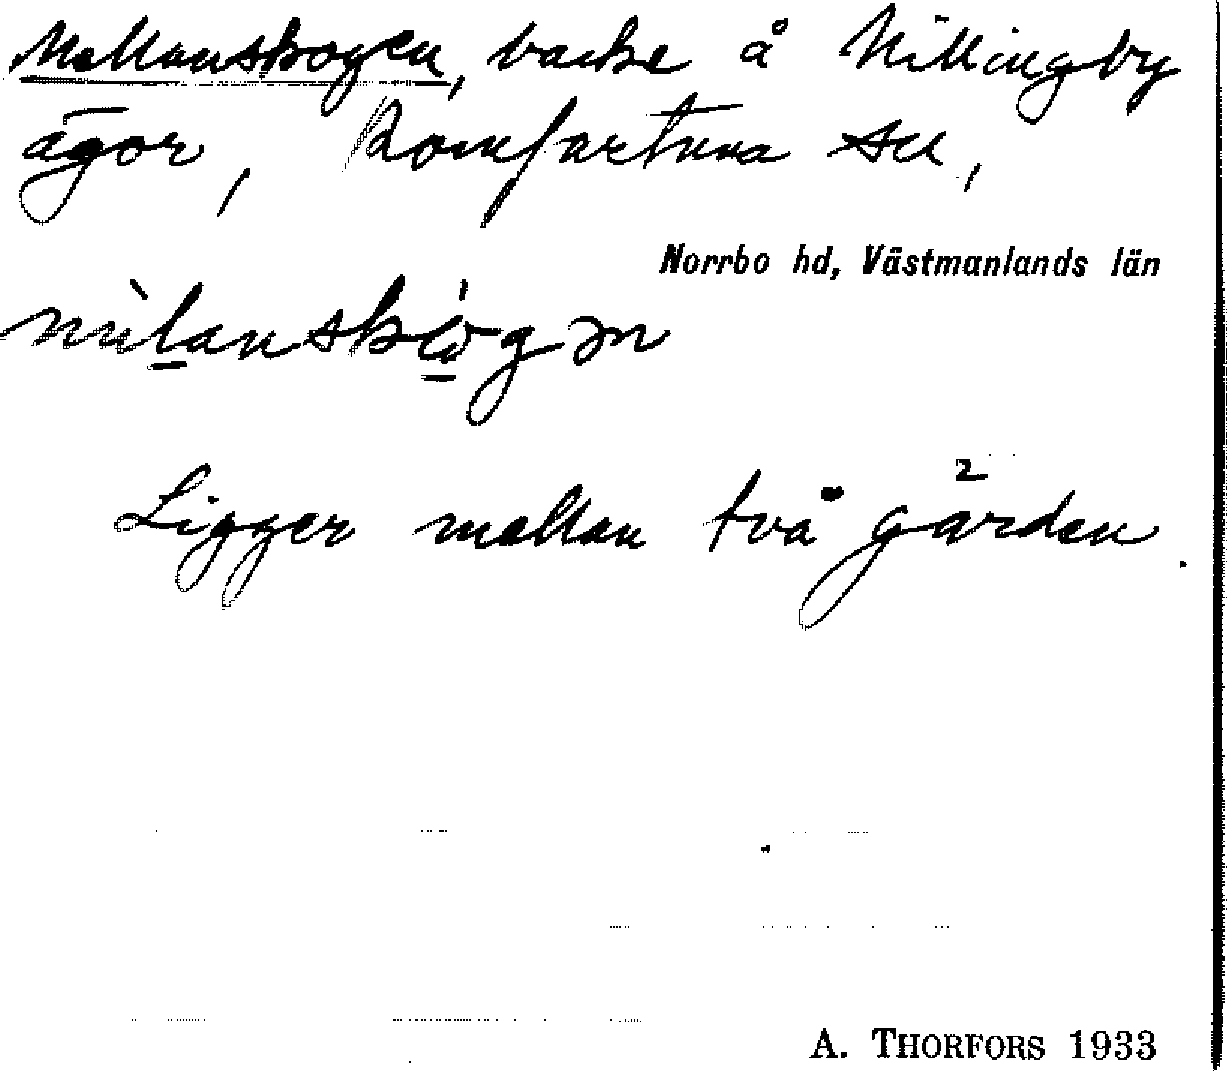 Mellanskogen, backe å Nillingby
ägor, Romfartuna sn,
Norrbo hd, Västmanlands län
Ligger mellan två gärden.
A. THORFORS 1933